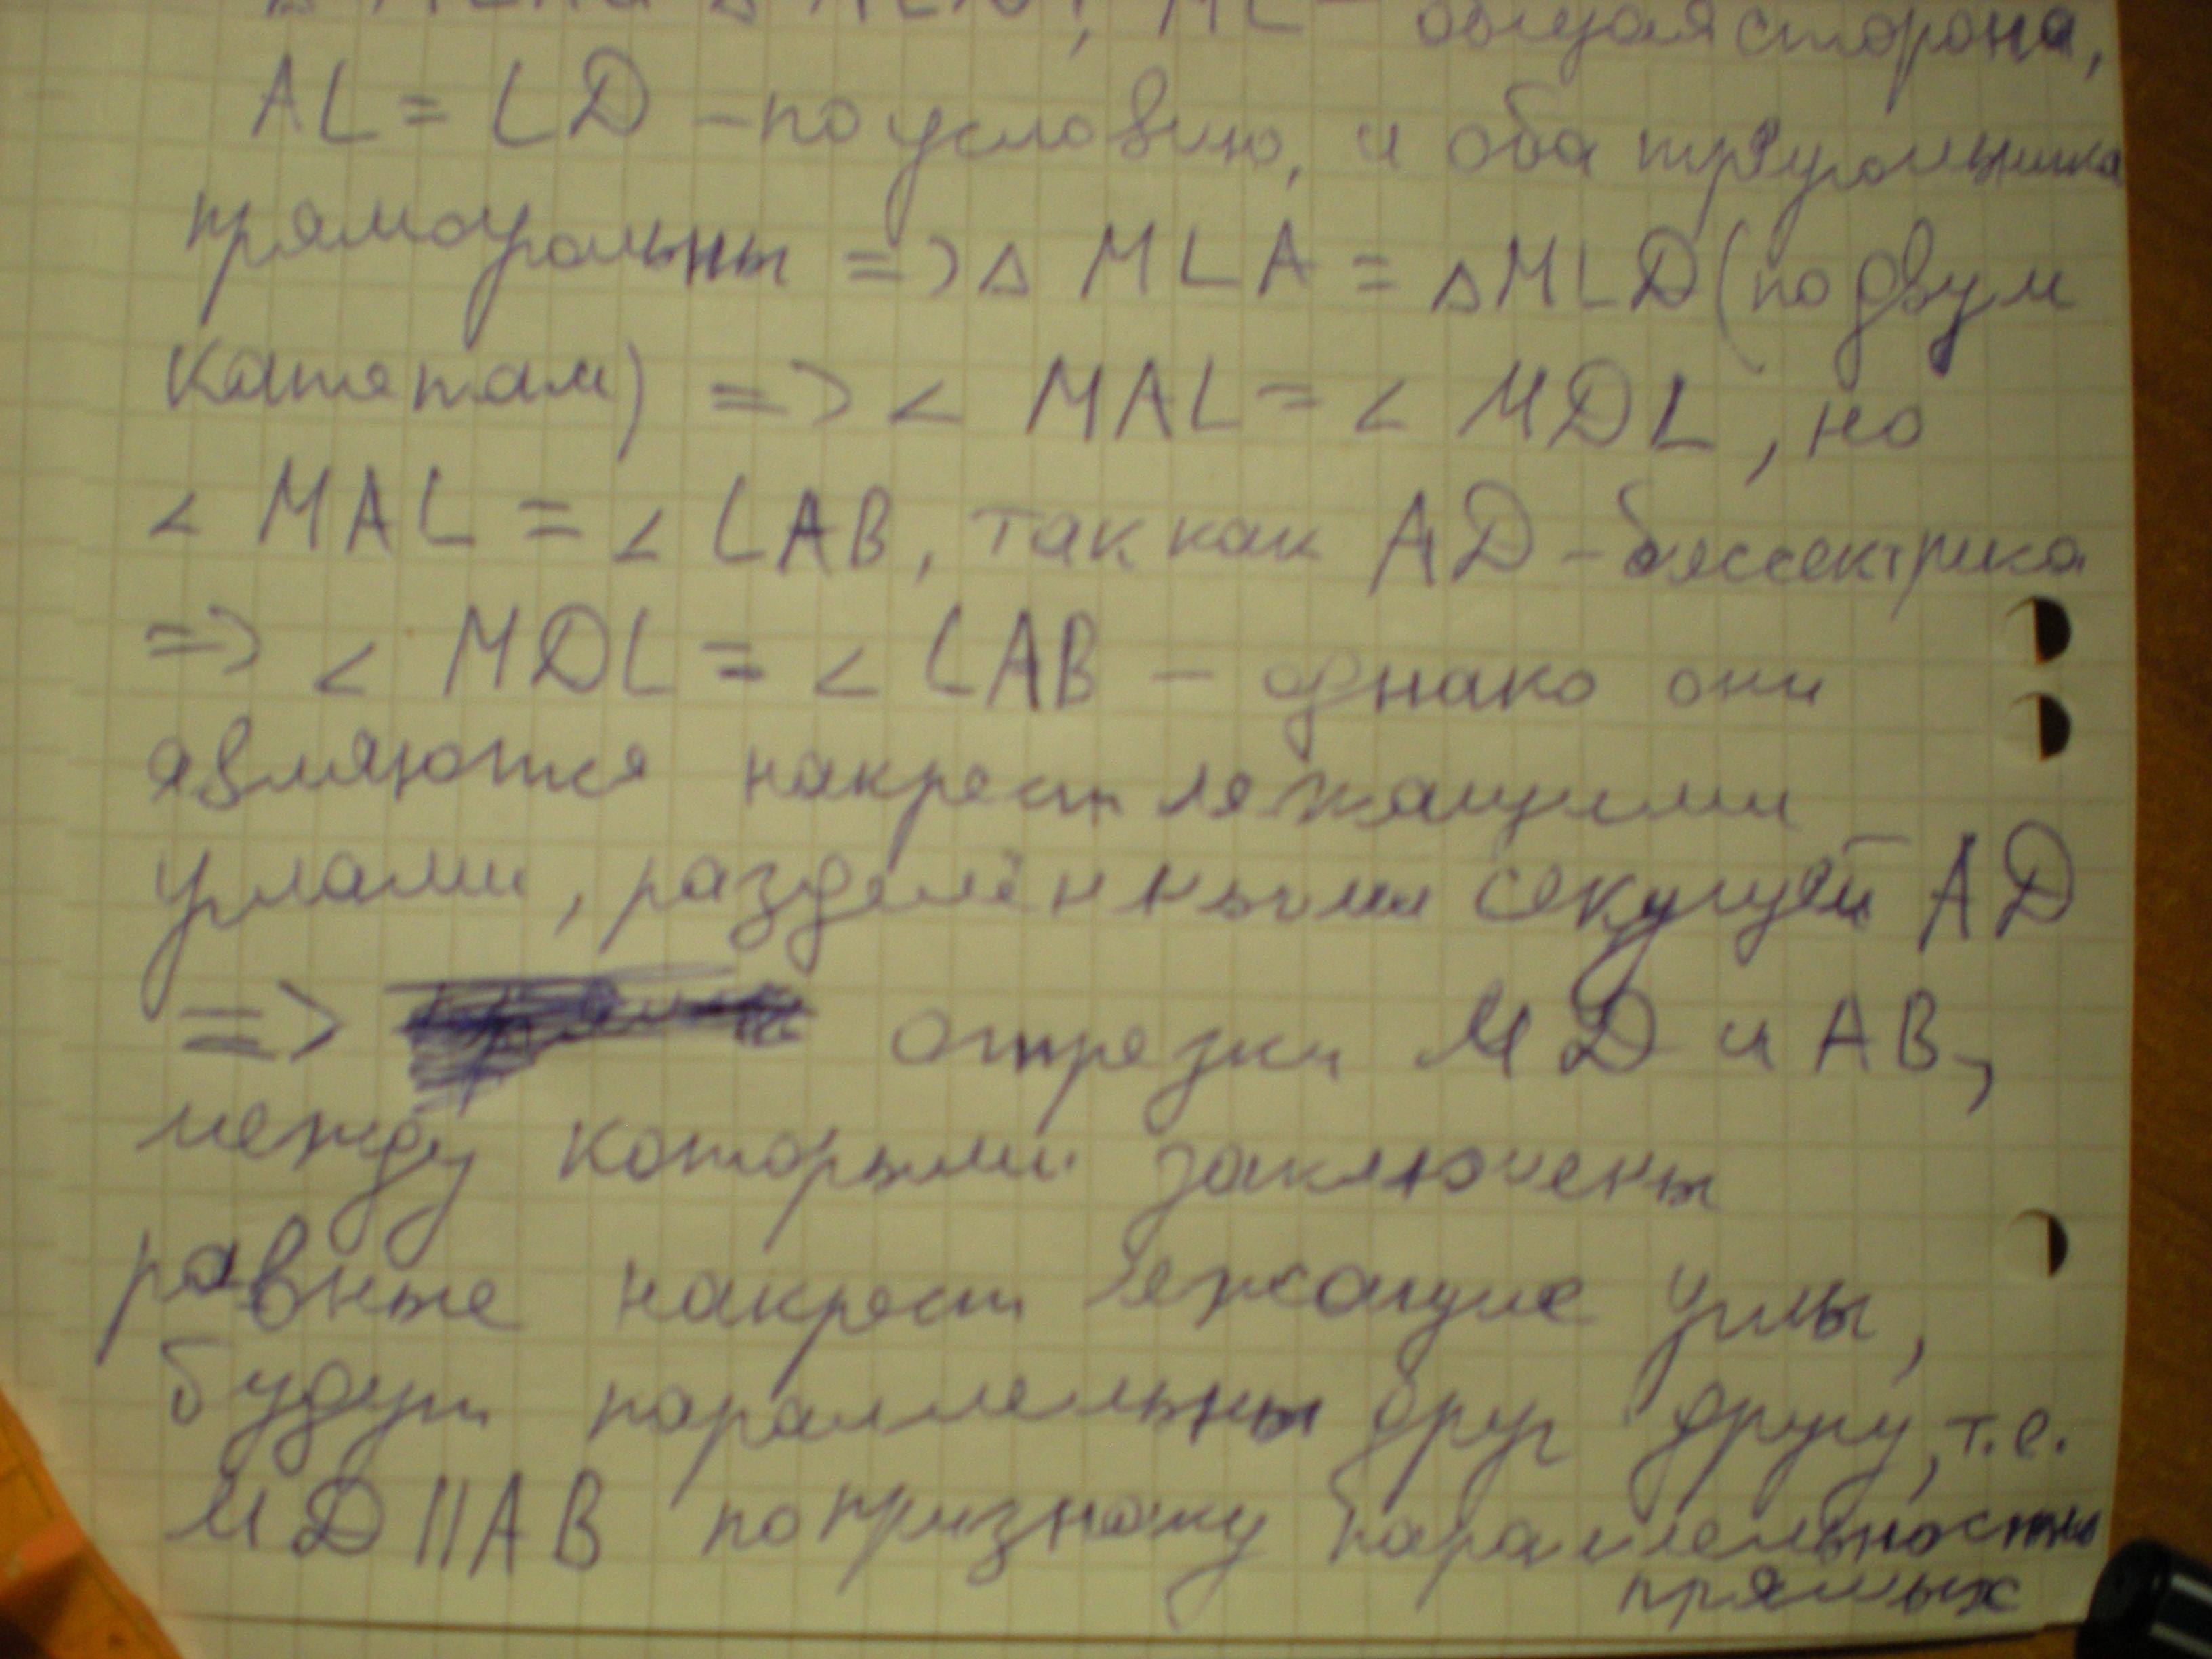 ML - общая сторона,
AL = LD - по условию, и оба треугольника
прямоугольны => △ MLA = △ MLD (по двум
катетам) => < MAL = < MDL, но
< MAL = < LAB, так как AD - бессектриса
=> < MDL = < LAB - однако они
являются накрест лежащими
углами, разделёнными секущей AD
=> отрезки MD и AB,
между которыми заключены
равные накрест лежащие углы,
будут параллельны друг другу, т.е.
MD || AB по признаку параллельности
прямых